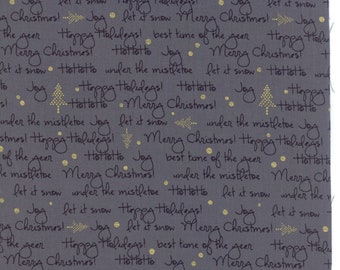 Joy let it snow Happy Holidays! Joy
Merry Christmas! Happy Holidays! best time of the year Joy
let it snow Joy HoHoHo Merry Christmas!
Joy HoHoHo under the mistletoe Joy let it snow
Merry Christmas! HoHoHo
HoHoHo under the mistletoe Joy Happy Holidays!
let it snow Happy Holidays! Merry Christmas!
of the year Joy best time of the year Joy
under the mistletoe Merry Christmas! HoHoHo
HoHoHo under the mistletoe let it snow
Joy let it snow Happy Holidays! Joy
Merry Christmas! Happy Holidays!
of the year Happy Holidays! best time of the year Joy
let it snow Joy HoHoHo Merry Christmas!